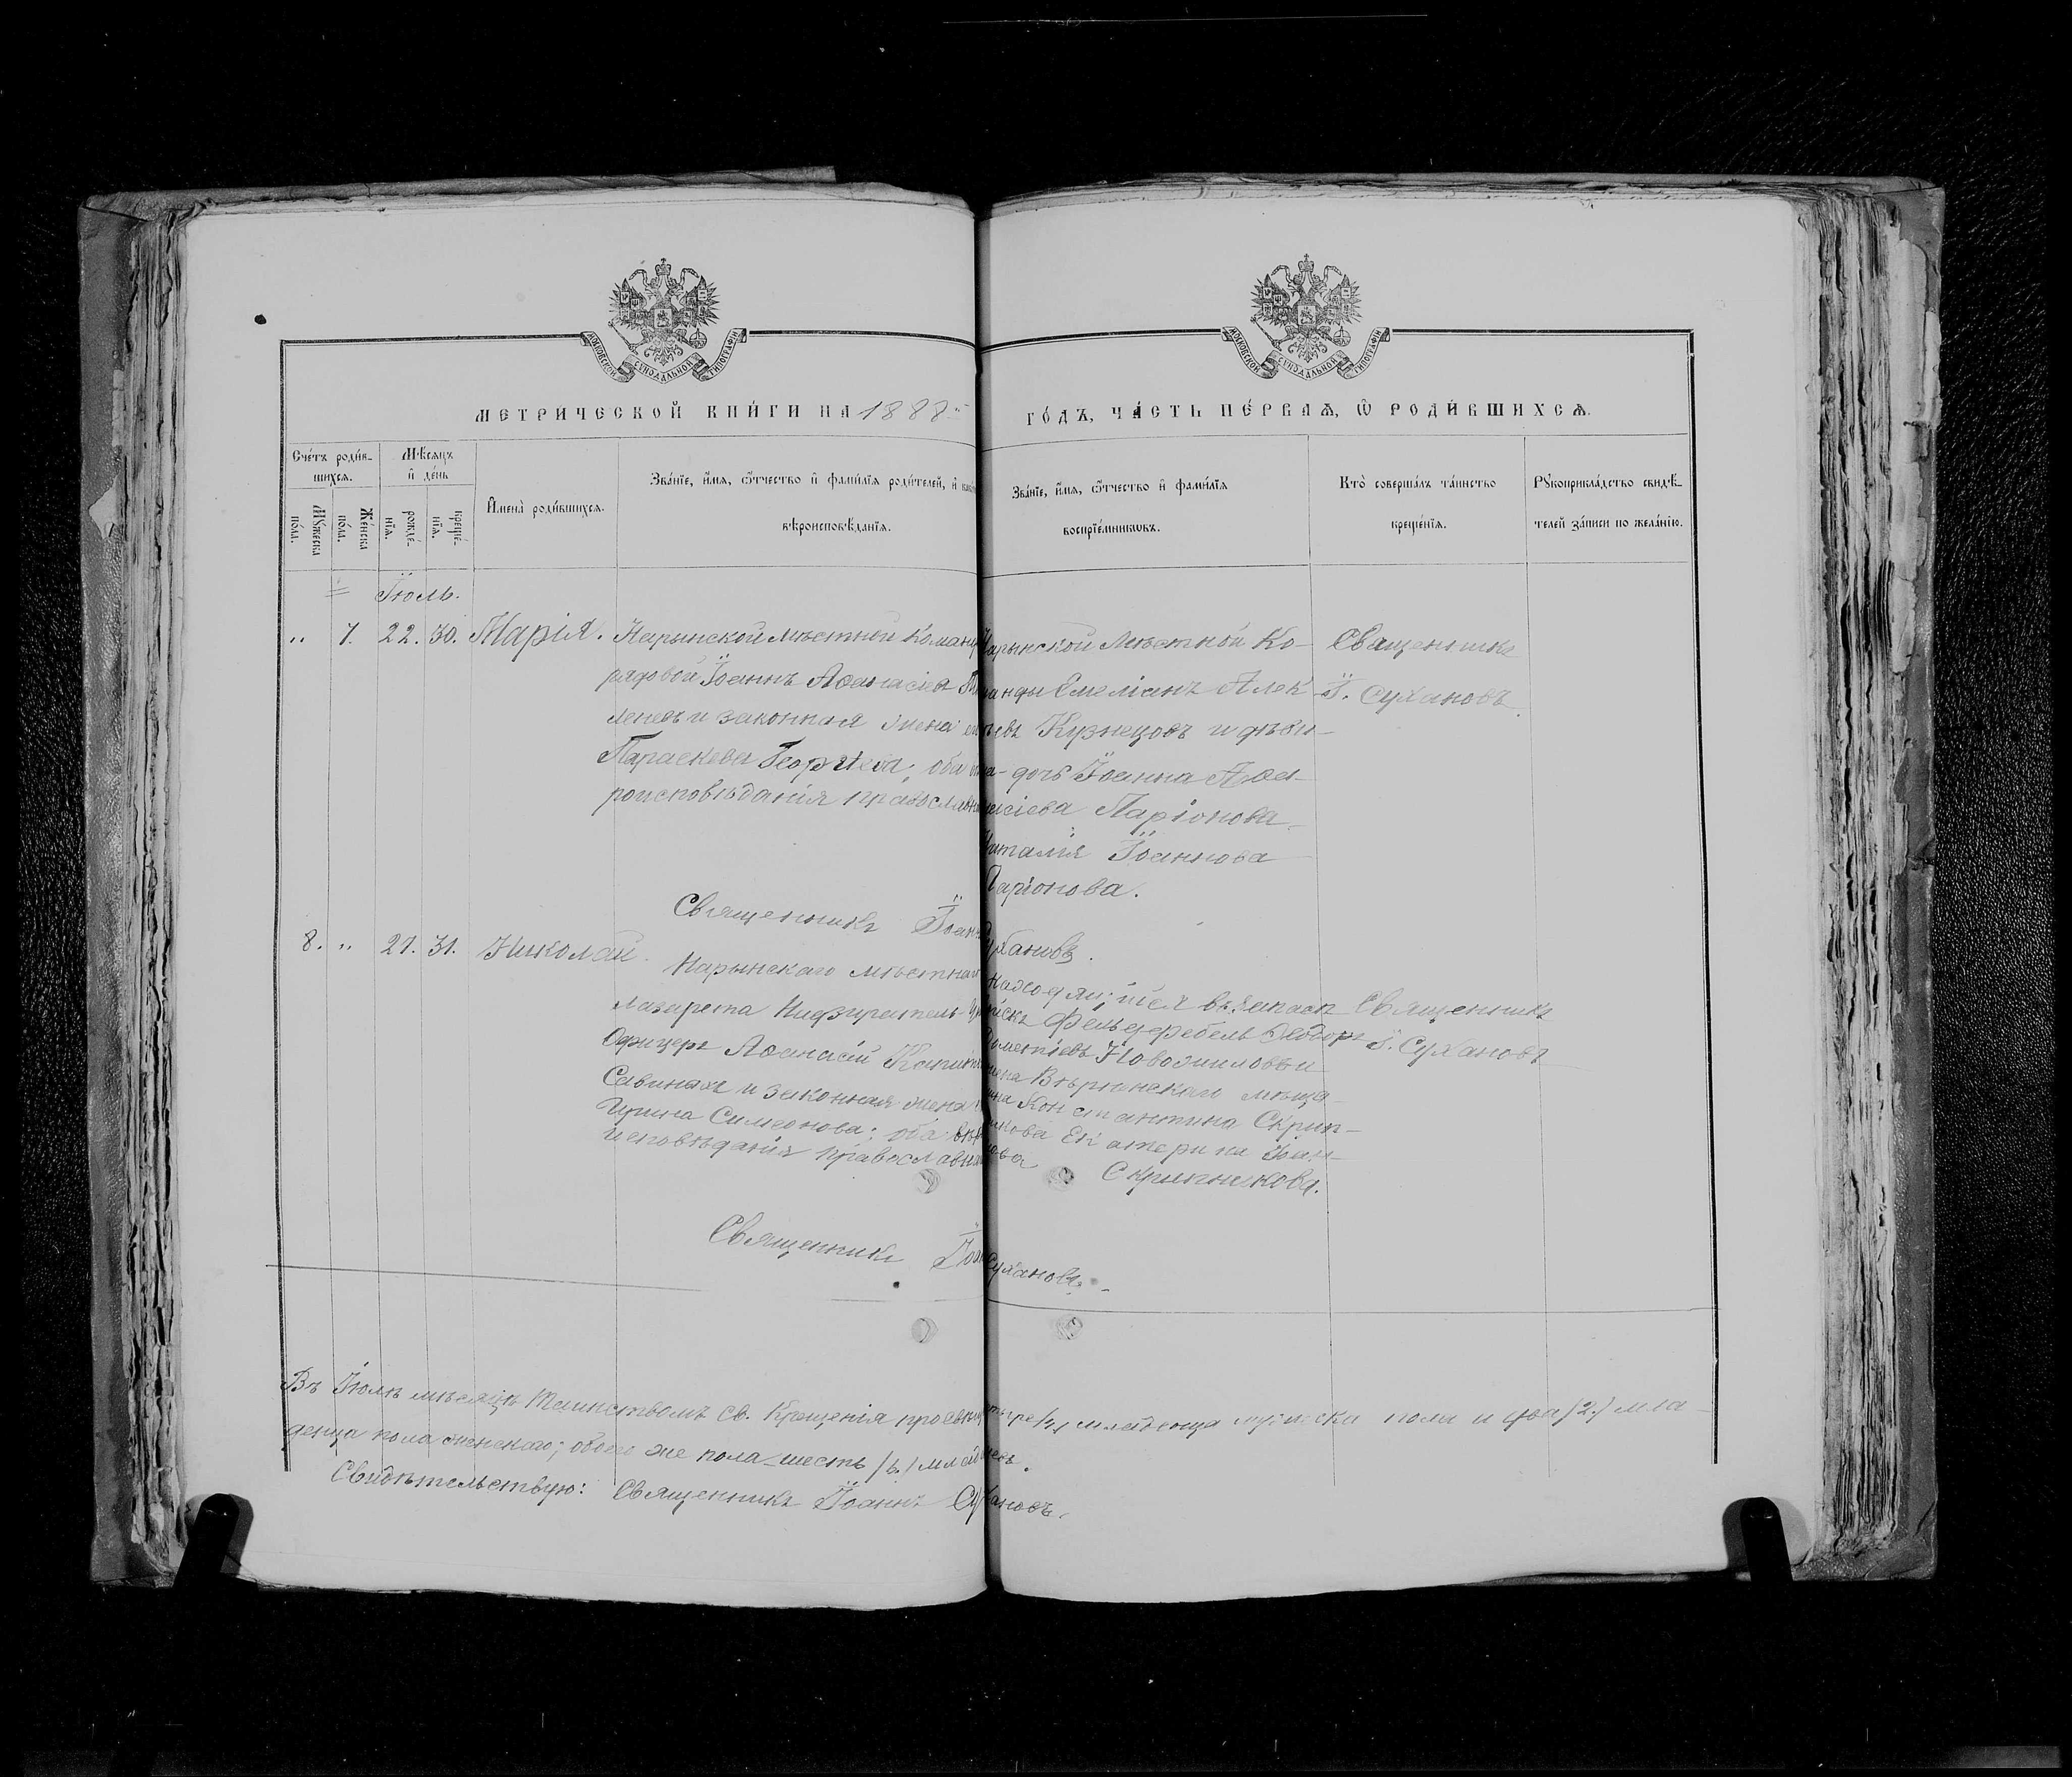 МОСКОВСКОЙ СѴНОДАЛЬНОЙ ТИПОГРАФІИ
МОСКОВСКОЙ СѴНОДАЛЬНОЙ ТИПОГРАФІИ
МЕТРИ́ЧЕСКОЙ КНИ́ГИ НА 1888 ГО́ДЪ, ЧА́СТЬ ПЕ́РВАѦ, Ѡ҆ РОДИ́ВШИХСѦ.
Сче́тъ роди́в-
шихсѧ.
Мꙋ́жеска по́ла.
Же́нска по́ла.
Мѣ́сѧцъ
и҆ де́нь
рожде́-
нїѧ.
креще́-
нїѧ.
И҆мена̀ роди́вшихсѧ.
Зва́нїе, и҆́мѧ, ѻ҆́тчество и҆ фами́лїѧ роди́телей, и҆
вѣроисповѣ́данїѧ.
Зва́нїе, и҆́мѧ, ѻ҆́тчество и҆ фами́лїѧ
воспрїе́мниковъ.
Кто̀ соверша́лъ та́инство
креще́нїѧ.
Рꙋкоприкла́дство свидѣ́-
телей за́писи по жела́нїю.
Іюль.
„ 7. 22. 30. Марія.
Нарынской мѣстной Команд
рядовой Іоаннъ Аѳанасіев
леневъ и законная жена
Параскева Георгіева; оба
роисповѣданія православн
Нарынской Мѣстной Ко-
манды Емеліанъ Алек-
ѣевъ Кузнецовъ и дѣви-
ца - дочь Іоанна Аѳа-
насіева Ларіонова
Наталія Іоаннова
Ларіонова.
Священникъ
І. Сухановъ
Священникъ Іоаннъ Сухановъ.
8. „ 27. 31. Николай.
Нарынскаго мѣстнаго
лазарета Надзиратель
Офицеръ Аѳанасій
Савиных и законная жена
Ирина Симеонова; оба вѣро
исповѣданія православнаго
Находящійся въ запасѣ
Фельдфебель Ѳеодоръ
Дометіевъ Новожиловъ и
жена Вѣрненскаго мѣща-
нина Константина Скрип-
никова Екатерина Іоан-
нова Скрипникова.
Священникъ
І. Сухановъ
Священникъ Іоаннъ Сухановъ.
Въ Іюлѣ мѣсяцѣ Таинствомъ Св. Крещенія просвѣщ четыре /4/ младенца мужеска пола и два /2./ мла-
денца пола женскаго; обоего же пола - шесть /6./ младенцевъ.
Свидѣтельствую: Священникъ Іоаннъ Сухановъ.